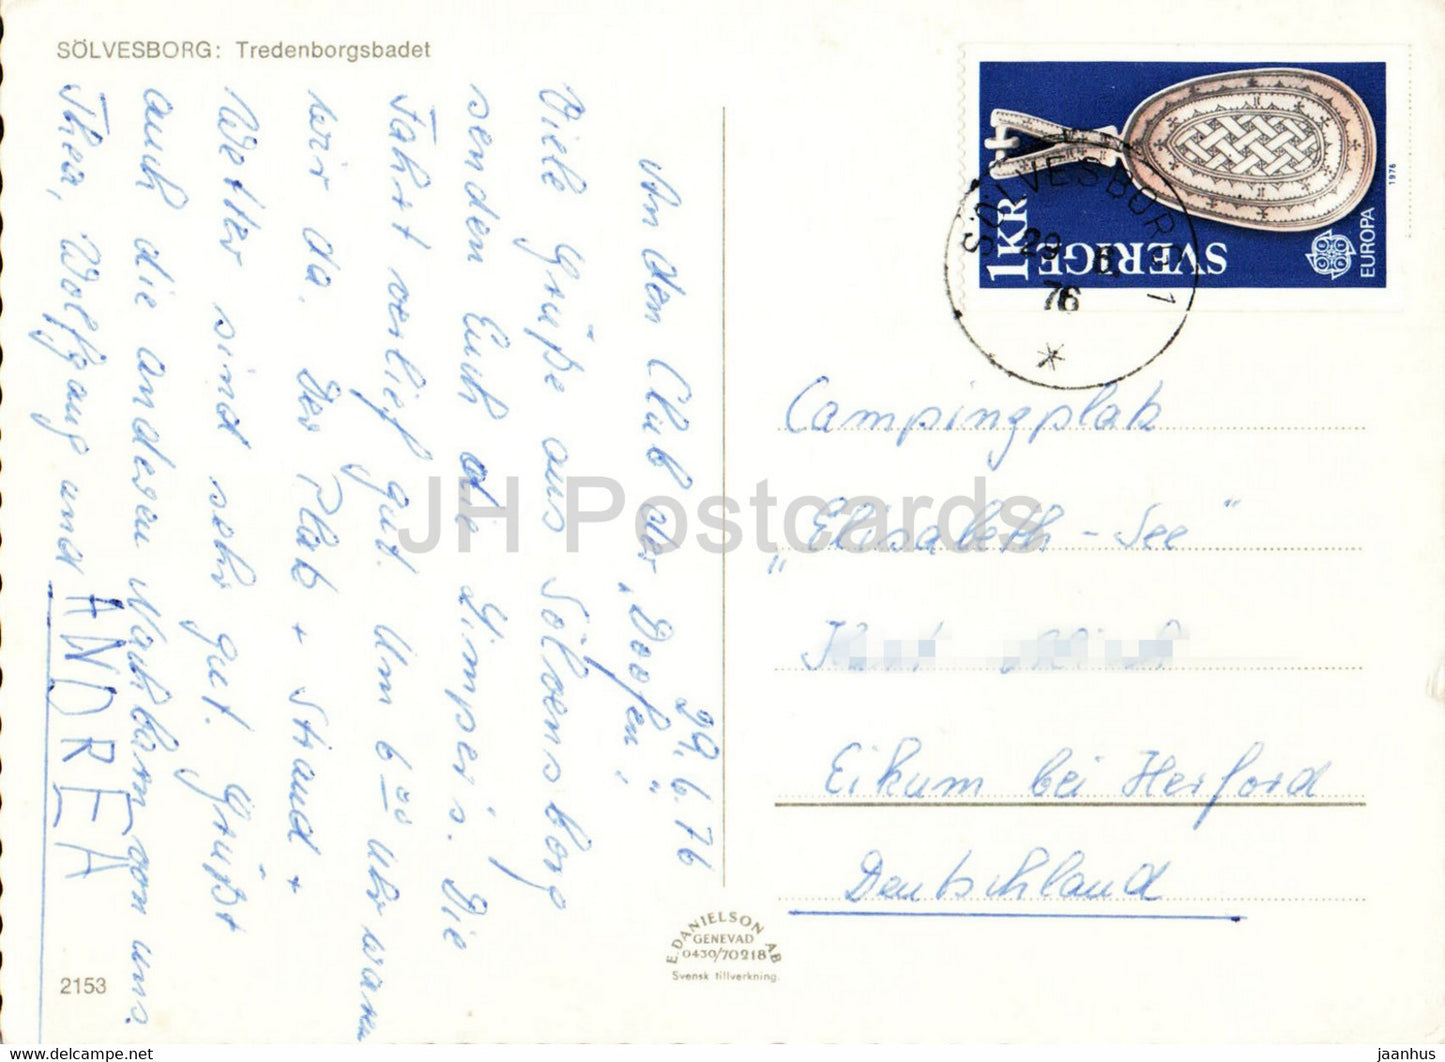 SÖLVESBORG: Tredenborgsbadet
29.6.76
An den Club der „Doofen“!
Viele Grüße aus Sölvensborg
senden Euch die Gimpers. Die
Fahrt verlief gut. Um 6 00 Uhr waren
wir da. Der Platz + Strand +
Wetter sind sehr gut. Grüßt
auch die anderen Nachbarn von uns.
Thea, Wolfgang und ANDREA
SVERIGE
1KR
EUROPA
CEPT
1976
SÖLVESBORG 1
29 6
76
Campingplatz
„Elisabeth-See“
Eikum bei Herford
Deutschland
E. DANIELSON AB
GENEVAD
0430/70218
Svensk tillverkning.
2153
JH Postcards
jaanhus @ www.delcampe.net